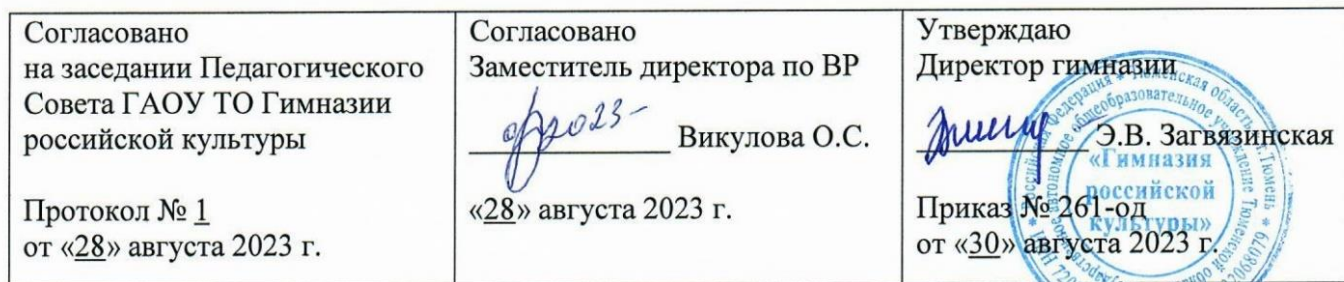 Согласовано
на заседании Педагогического
Совета ГАОУ ТО Гимназии
российской культуры
Протокол № 1
от «28» августа 2023 г.
Согласовано
Заместитель директора по ВР
Викулова О.С.
«28» августа 2023 г.
Утверждаю
Директор гимназии
Э.В. Загвязинская
Приказ № 261-од
от «30» августа 2023 г.
«Гимназия
российской
культуры»